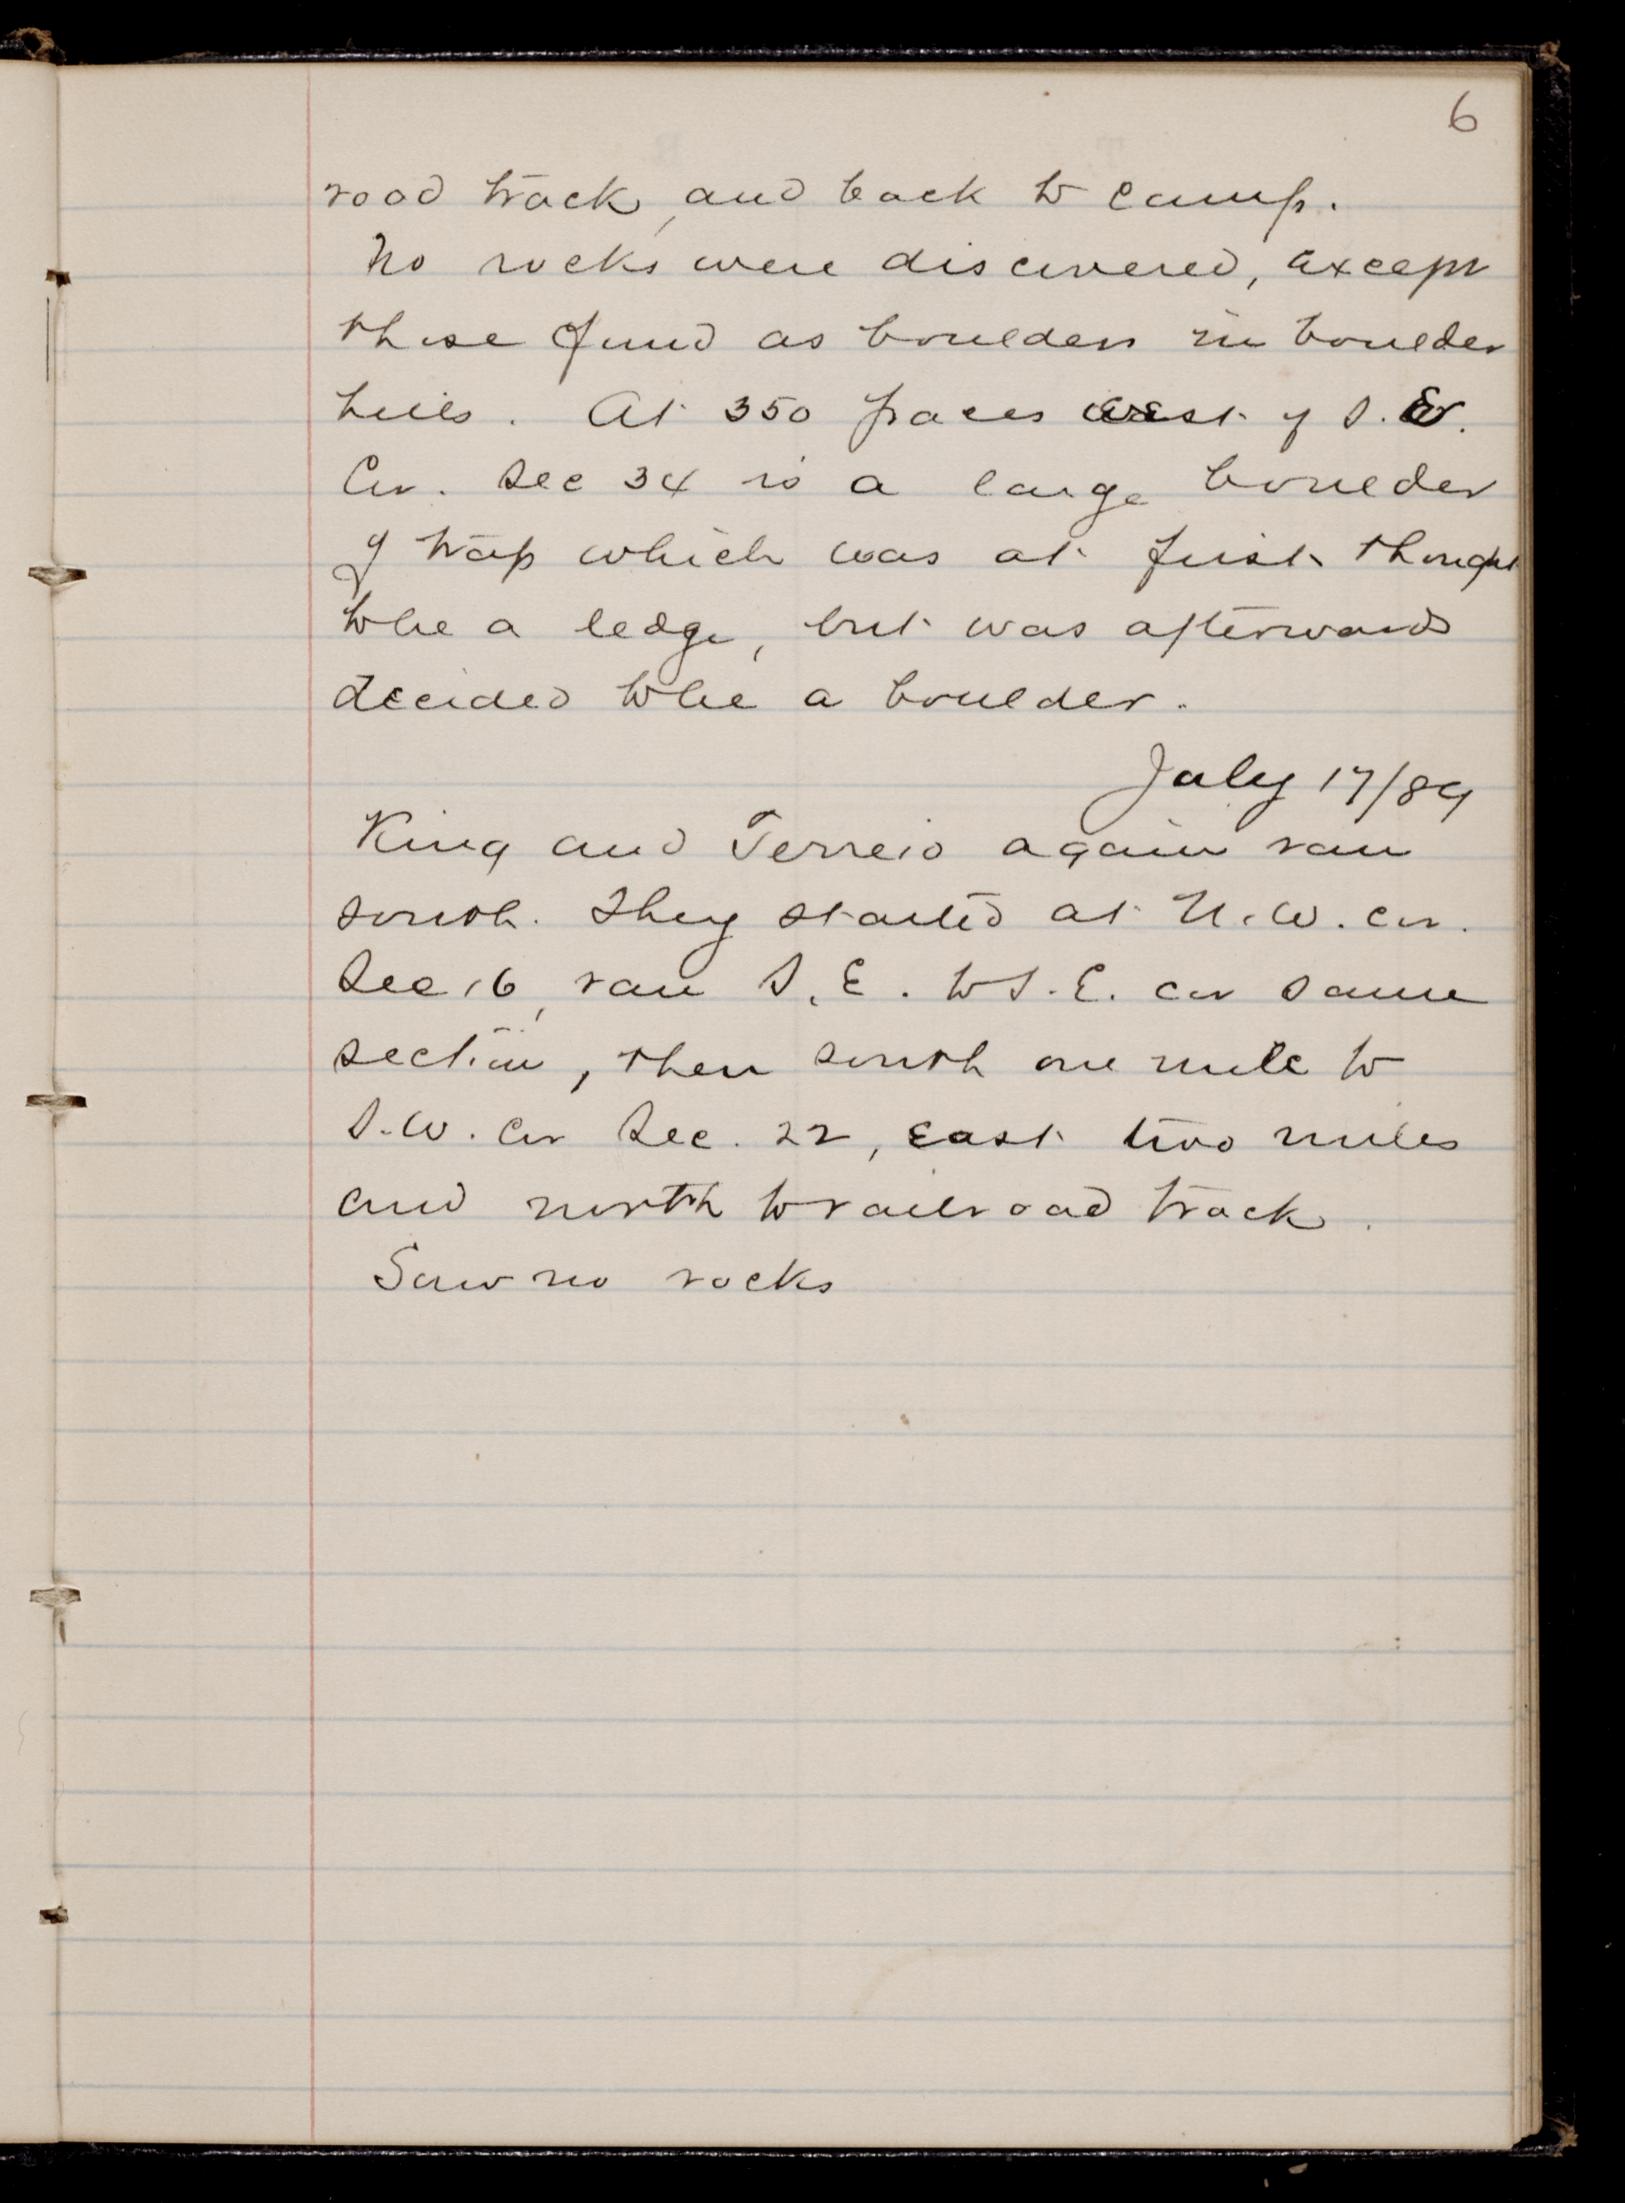 6
road track, and back to camp.
No rocks were discovered, except
those found as boulders in boulder
hills. At 350 paces west of S.
Cor. Sec 34 is a large boulder
of trap which was at first thought
to be a ledge, but was afterwards
decided to be a boulder.
July 17/89
King and Terreio again ran
south. They started at N.W. cor.
Sec 16, ran S.E. to S.E. cor same
section, then south one mile to
S.W. Cor Sec. 22, east two miles
and north to railroad track.
Saw no rocks